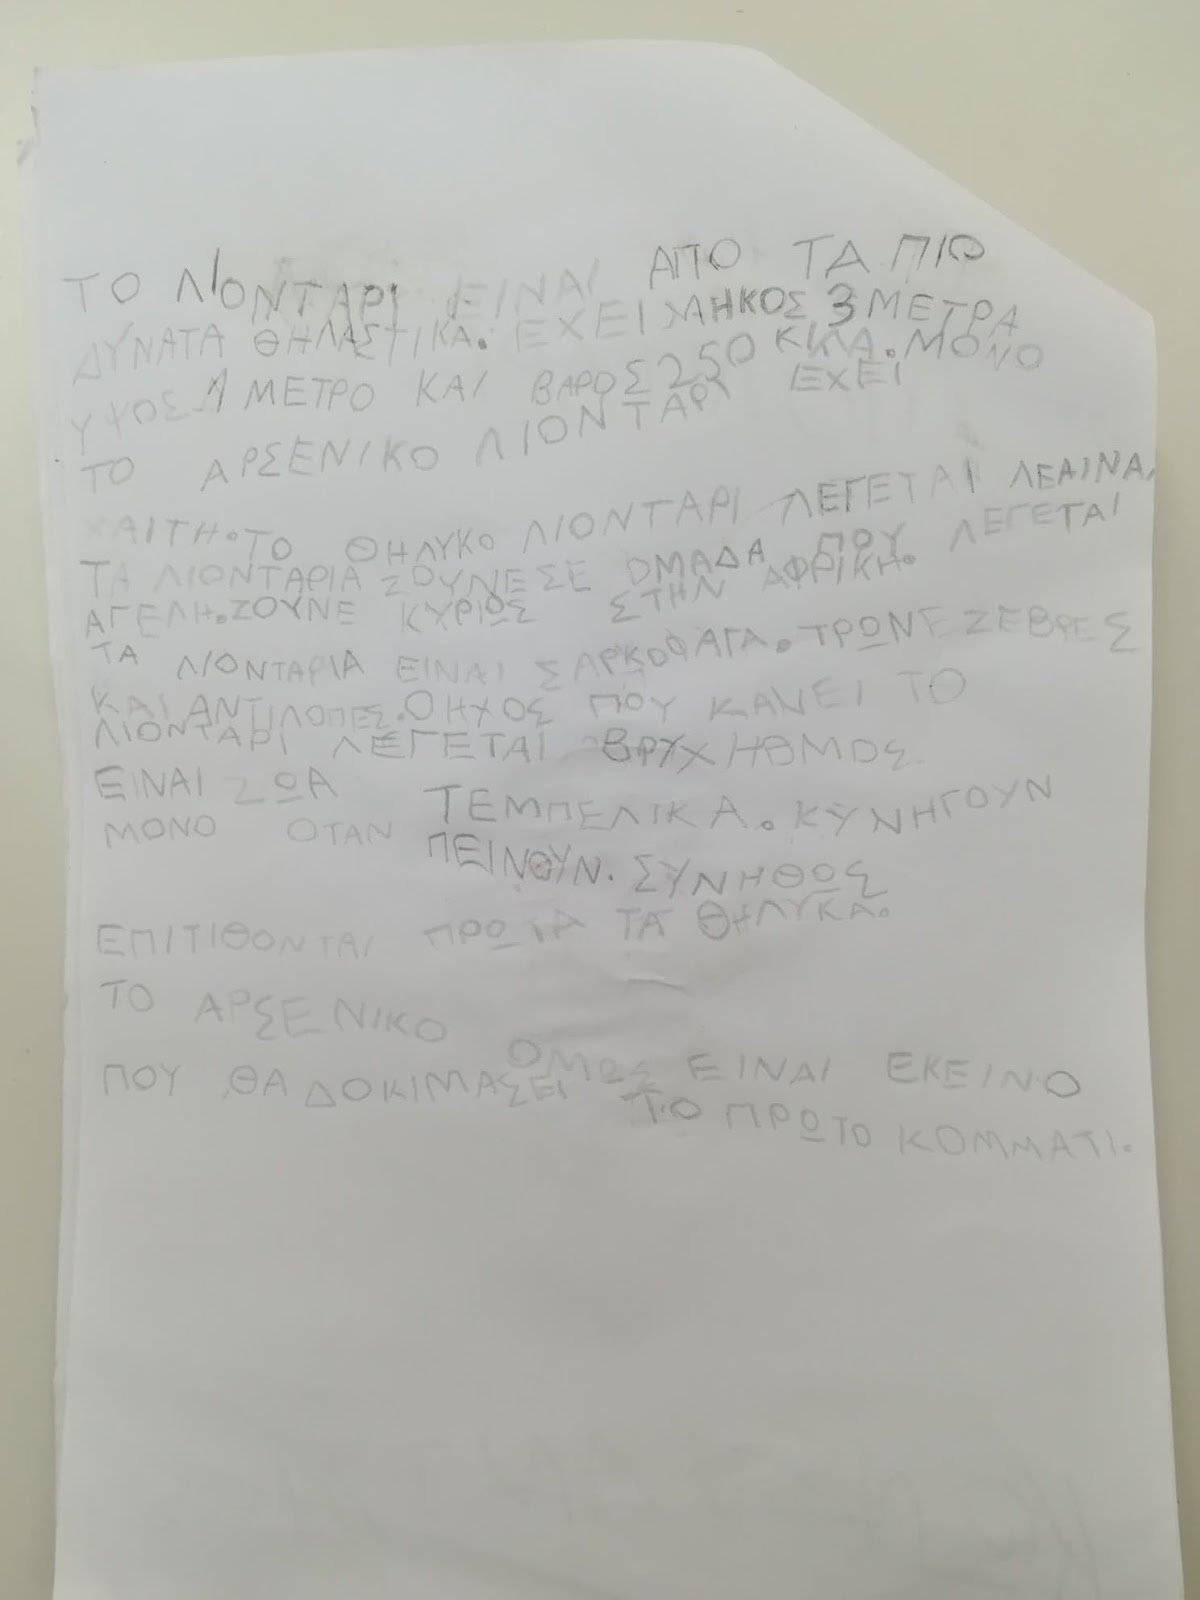 ΤΟ ΛΙΟΝΤΑΡΙ ΕΙΝΑΙ ΑΠΟ ΤΑ ΠΙΟ
ΔΥΝΑΤΑ ΘΗΛΑΣΤΙΚΑ. ΕΧΕΙ ΜΗΚΟΣ 3 ΜΕΤΡΑ
ΥΨΟΣ 1 ΜΕΤΡΟ ΚΑΙ ΒΑΡΟΣ 250 ΚΙΛΑ. ΜΟΝΟ
ΤΟ ΑΡΣΕΝΙΚΟ ΛΙΟΝΤΑΡΙ ΕΧΕΙ
ΧΑΙΤΗ. ΤΟ ΘΗΛΥΚΟ ΛΙΟΝΤΑΡΙ ΛΕΓΕΤΑΙ ΛΕΑΙΝΑ.
ΤΑ ΛΙΟΝΤΑΡΙΑ ΖΟΥΝΕ ΣΕ ΟΜΑΔΑ ΠΟΥ ΛΕΓΕΤΑΙ
ΑΓΕΛΗ. ΖΟΥΝΕ ΚΥΡΙΩΣ ΣΤΗΝ ΑΦΡΙΚΗ.
ΤΑ ΛΙΟΝΤΑΡΙΑ ΕΙΝΑΙ ΣΑΡΚΟΦΑΓΑ. ΤΡΩΝΕ ΖΕΒΡΕΣ
ΚΑΙ ΑΝΤΙΛΟΠΕΣ. Ο ΗΧΟΣ ΠΟΥ ΚΑΝΕΙ ΤΟ
ΛΙΟΝΤΑΡΙ ΛΕΓΕΤΑΙ ΒΡΥΧΗΘΜΟΣ.
ΕΙΝΑΙ ΖΩΑ ΤΕΜΠΕΛΙΚΑ. ΚΥΝΗΓΟΥΝ
ΜΟΝΟ ΟΤΑΝ ΠΕΙΝΟΥΝ. ΣΥΝΗΘΩΣ
ΕΠΙΤΙΘΟΝΤΑΙ ΠΡΩΤΑ ΤΑ ΘΗΛΥΚΑ.
ΤΟ ΑΡΣΕΝΙΚΟ ΟΜΩΣ ΕΙΝΑΙ ΕΚΕΙΝΟ
ΠΟΥ ΘΑ ΔΟΚΙΜΑΣΕΙ ΤΟ ΠΡΩΤΟ ΚΟΜΜΑΤΙ.